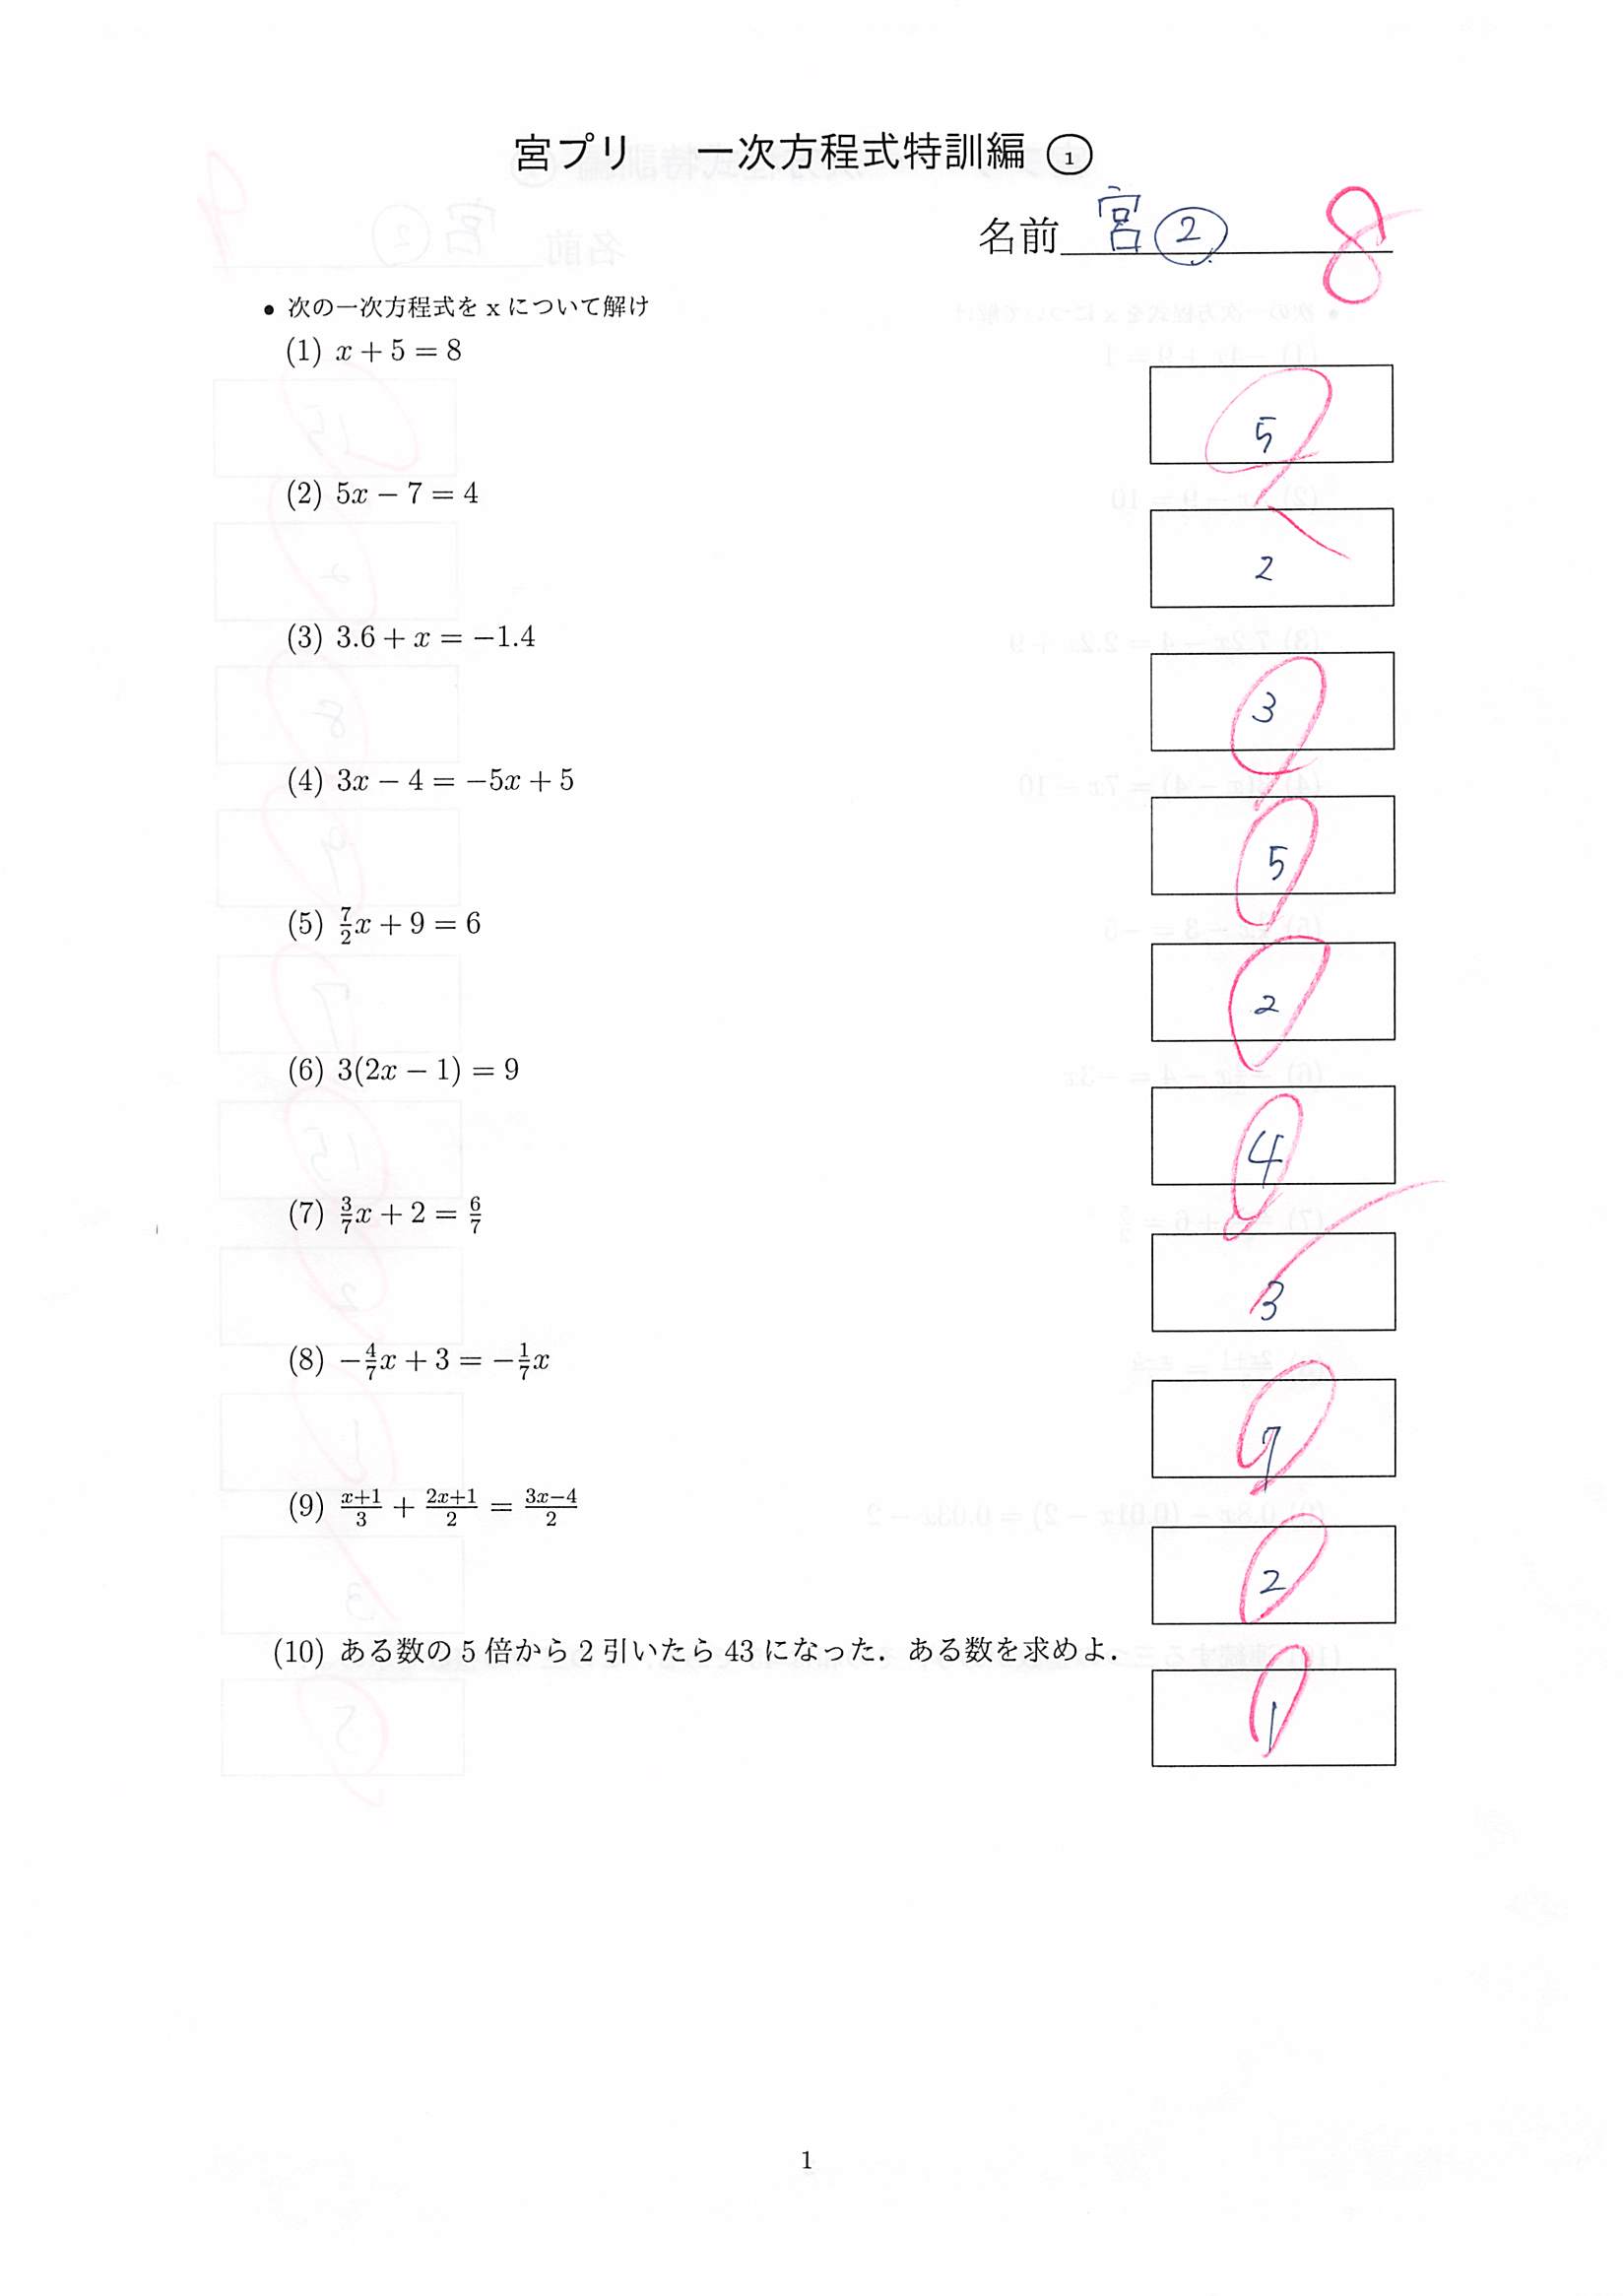 宮プリ　一次方程式特訓編 ①
名前 宮② 8
• 次の一次方程式を x について解け
(1) x + 5 = 8
5
(2) 5x − 7 = 4
2
(3) 3.6 + x = −1.4
3
(4) 3x − 4 = −5x + 5
5
(5) 7/2 x + 9 = 6
2
(6) 3(2x − 1) = 9
4
(7) 3/7 x + 2 = 6/7
3
(8) −4/7 x + 3 = −1/7 x
7
(9) (x+1)/3 + (2x+1)/2 = (3x−4)/2
2
(10) ある数の 5 倍から 2 引いたら 43 になった．ある数を求めよ．
1
1